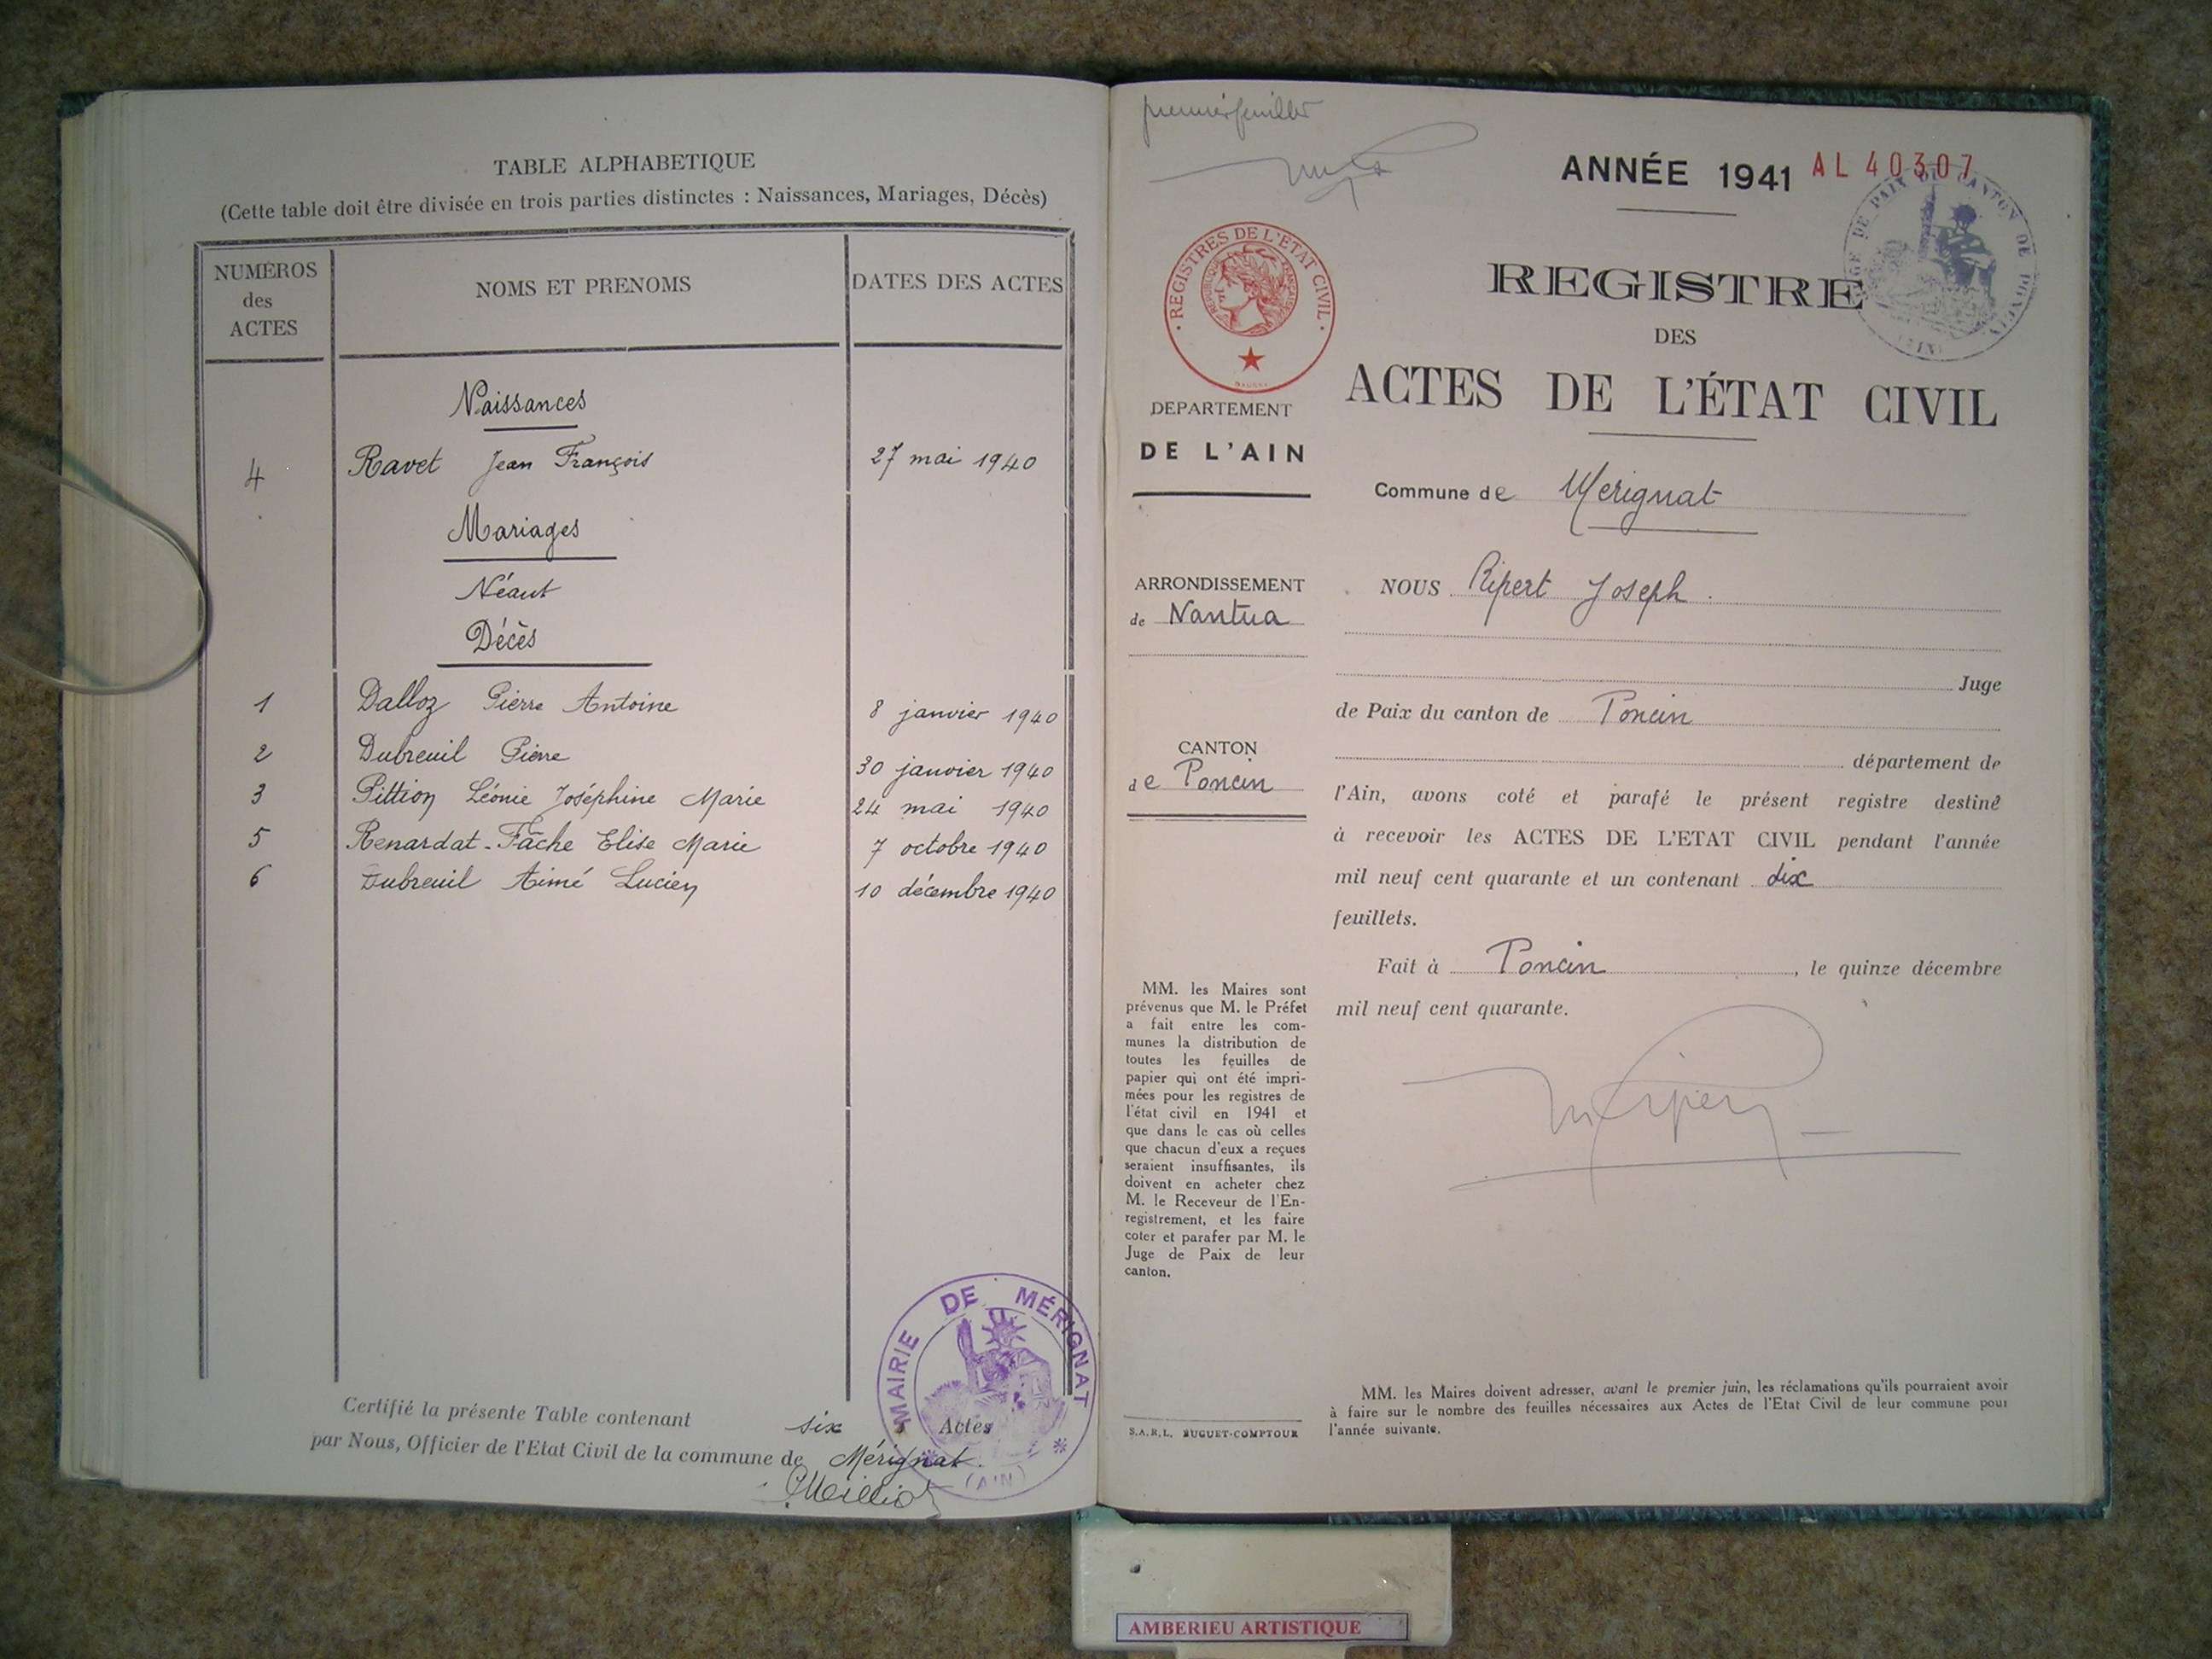 TABLE ALPHABETIQUE
(Cette table doit être divisée en trois parties distinctes : Naissances, Mariages, Décès)
NUMÉROS des ACTES
NOMS ET PRENOMS
DATES DES ACTES
Naissances
4 Ravet Jean François 27 mai 1940
Mariages
Néant
Décès
1 Dalloz Pierre Antoine 8 janvier 1940
2 Dubreuil Pierre 30 janvier 1940
3 Pittion Léonie Joséphine Marie 24 mai 1940
5 Renardat-Fâche Elise Marie 7 octobre 1940
6 Dubreuil Aimé Lucien 10 décembre 1940
Certifié la présente Table contenant six Actes
par Nous, Officier de l'Etat Civil de la commune de Mérignat.
MAIRIE DE MÉRIGNAT
(AIN)
premier feuillet
ANNÉE 1941 AL 40307
REGISTRES DE L'ÉTAT CIVIL
REGISTRE
DES
ACTES DE L'ÉTAT CIVIL
DEPARTEMENT
DE L'AIN
Commune de Mérignat
ARRONDISSEMENT
de Nantua
NOUS Ripert Joseph.
Juge
de Paix du canton de Poncin
CANTON
de Poncin
département de
l'Ain, avons coté et parafé le présent registre destiné
à recevoir les ACTES DE L'ETAT CIVIL pendant l'année
mil neuf cent quarante et un contenant dix
feuillets.
Fait à Poncin, le quinze décembre
mil neuf cent quarante.
MM. les Maires sont
prévenus que M. le Préfet
a fait entre les com-
munes la distribution de
toutes les feuilles de
papier qui ont été impri-
mées pour les registres de
l'état civil en 1941 et
que dans le cas où celles
que chacun d'eux a reçues
seraient insuffisantes, ils
doivent en acheter chez
M. le Receveur de l'En-
registrement, et les faire
coter et parafer par M. le
Juge de Paix de leur
canton.
S.A.R.L. BUGUET-COMPTOUR
MM. les Maires doivent adresser, avant le premier juin, les réclamations qu'ils pourraient avoir
à faire sur le nombre des feuilles nécessaires aux Actes de l'Etat Civil de leur commune pour
l'année suivante.
AMBERIEU ARTISTIQUE